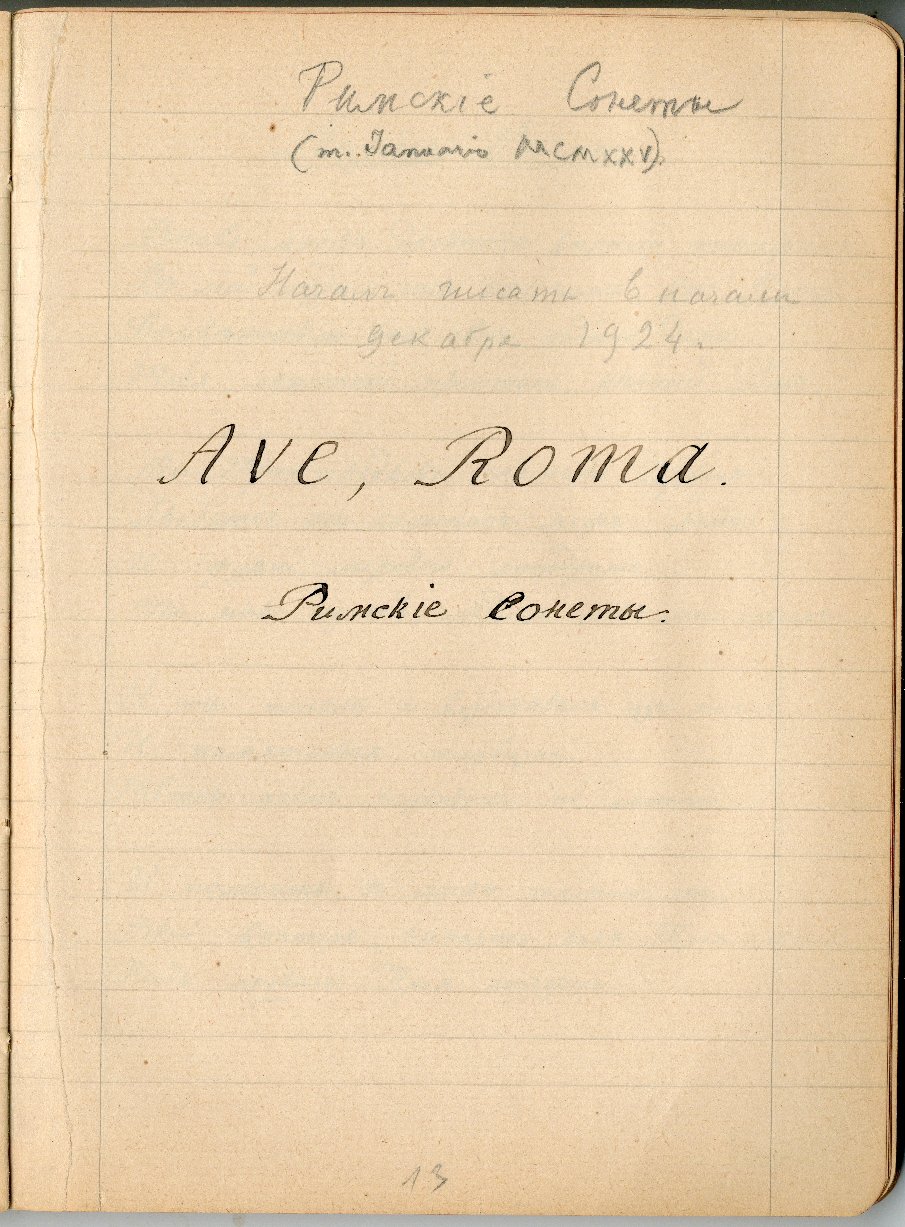 Римскіе Сонеты
(m. Ianuario MCMXXV).
Начал писать в начале
декабря 1924.
Ave, Roma.
Римскіе Сонеты.
13